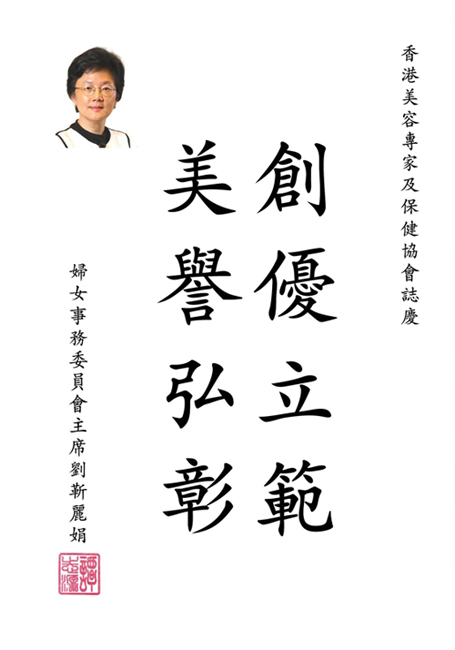 香港美容專家及保健協會誌慶
創優立範
美譽弘彰
婦女事務委員會主席劉靳麗娟
譚志源